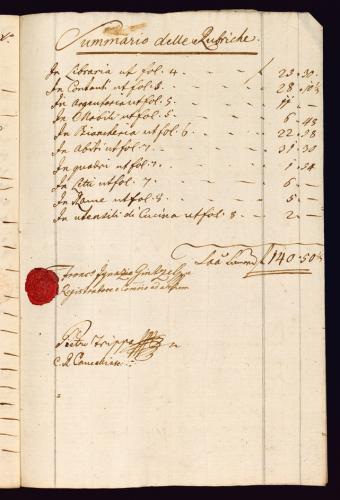 Summario delle Rubriche.
In Libraria ut fol. 4. f 23.30.
In Contanti ut fol. 5. 28.10½
In Argenteria ut fol. 5. 17.
In Mobili ut fol. 5. 6.45
In Biancheria ut fol. 6 22.58
In Abiti ut fol. 7. 31.30
In quadri ut fol. 7. 1.54
In Letti ut fol. 7 6.—
In Rame ut fol. 8. 5.—
In utensili di Cucina ut fol. 8. 2.—
f 140.50½
Ignazio
Registratore e
Pietro Trippa
C. R.